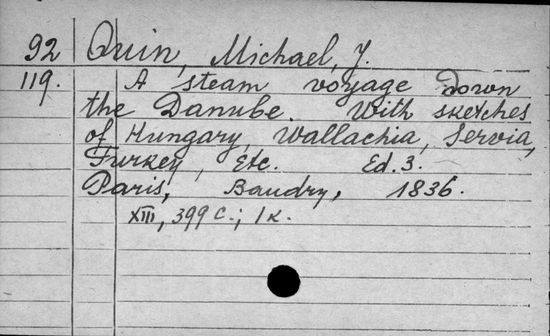 92 Quin, Michael, J.
119. A steam voyage down
the Danube. With sketches
of Hungary, Wallachia, Servia,
Turkey, Etc. Ed. 3.
Paris, Baudry, 1836.
XIII, 399 c.; 1 к.